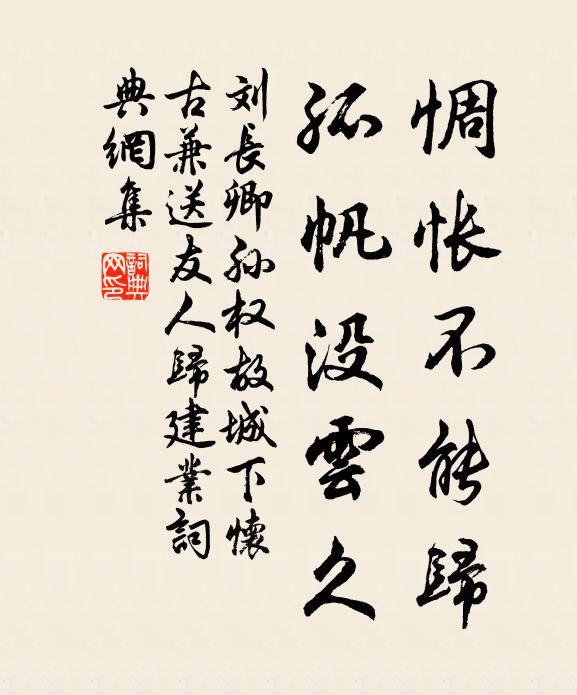 惆怅不能歸
孤帆没雲久
刘長卿孙权故城下懷
古兼送友人歸建業詞
典網集
詞典网印